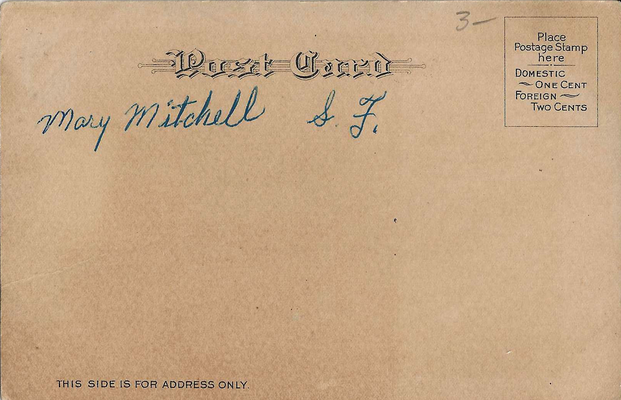 3-
Place
Postage Stamp
here
DOMESTIC
ONE CENT
FOREIGN
TWO CENTS
Post Card
Mary Mitchell S. F.
THIS SIDE IS FOR ADDRESS ONLY.